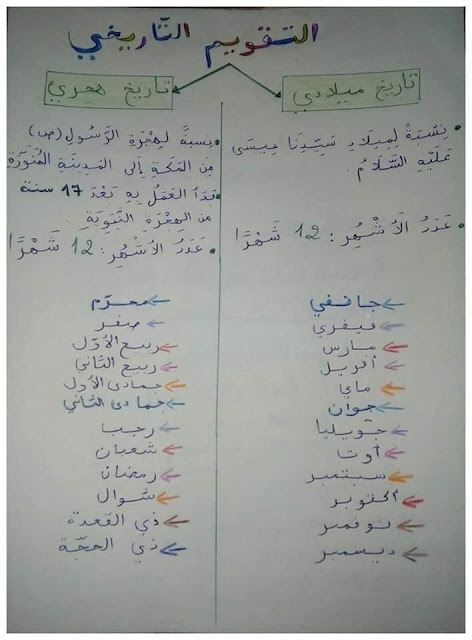 التقويم التاريخي
تاريخ ميلادي
• نِسْبَةً لِمِيلَادِ سَيِّدِنَا عِيسَى
عَلَيْهِ السَّلَامُ.
• عَدَدُ الأَشْهُرِ : 12 شَهْرًا
جانفي
فيفري
مارس
أفريل
ماي
جوان
جويليا
أوتا
سبتمبر
أكتوبر
نوفمبر
ديسمبر
تاريخ هجري
• نِسبةً لِهِجْرَةِ الرَّسُولِ (ص)
مِن المَكَةِ إلى المَدِينَةِ المُنَوَّرَةِ
• بَدَأ العَمَلُ بِهِ بَعْدَ 17 سنة
من الهِجْرَةِ النَّبَوِيَّةِ.
• عَدَدُ الأشْهُرِ : 12 شَهْرًا
محرّم
صفر
ربيع الأوّل
ربيع الثاني
جمادى الأول
جمادى الثاني
رجب
شعبان
رمضان
شوال
ذي القعدة
ذي الحجّة